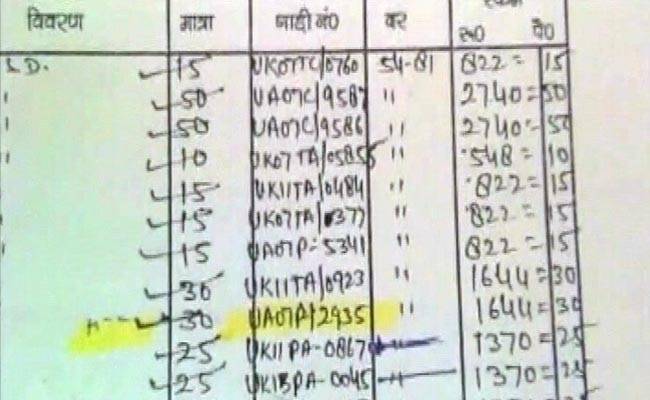 विवरण मात्रा गाड़ी नं० दर रू० पै०
S.D. 15 UK07TC/0760 54-81 822=15
" 50 UA07C/9587 " 2740=50
" 50 UA07C/9586 " 2740=50
" 10 UK07TA/05855 " 548=10
15 UK11TA/0484 " 822=15
15 UK07TA/0377 " 822=15
" 15 UA07P-5341 " 822=15
30 UK11TA/0923 " 1644=30
30 UA07P/2935 " 1644=30
25 UK11PA-0867 " 1370=25
25 UK13PA-0045 " 1370=25